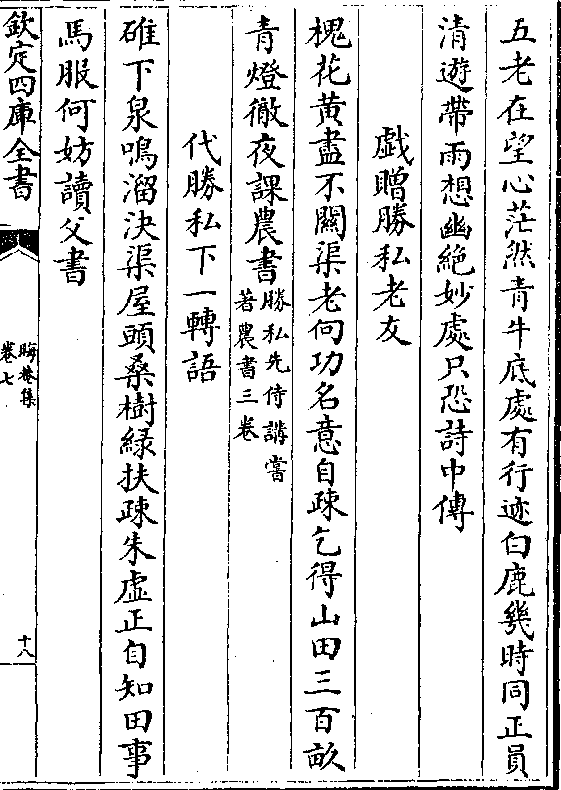 五老在望心茫然青牛底處有行迹白鹿幾時同正員
清遊帶雨想幽絶妙處只恐詩中傳
戯贈勝私老友
槐花黄盡不關渠老向功名意自疎乞得山田三百畝
青燈徹夜課農書勝私先侍講嘗
著農書三卷
代勝私下一轉語
碓下泉鳴溜決渠屋頭桑樹緑扶疎朱虚正自知田事
馬服何妨讀父書
欽定四庫全書
晦菴集
卷七
十八